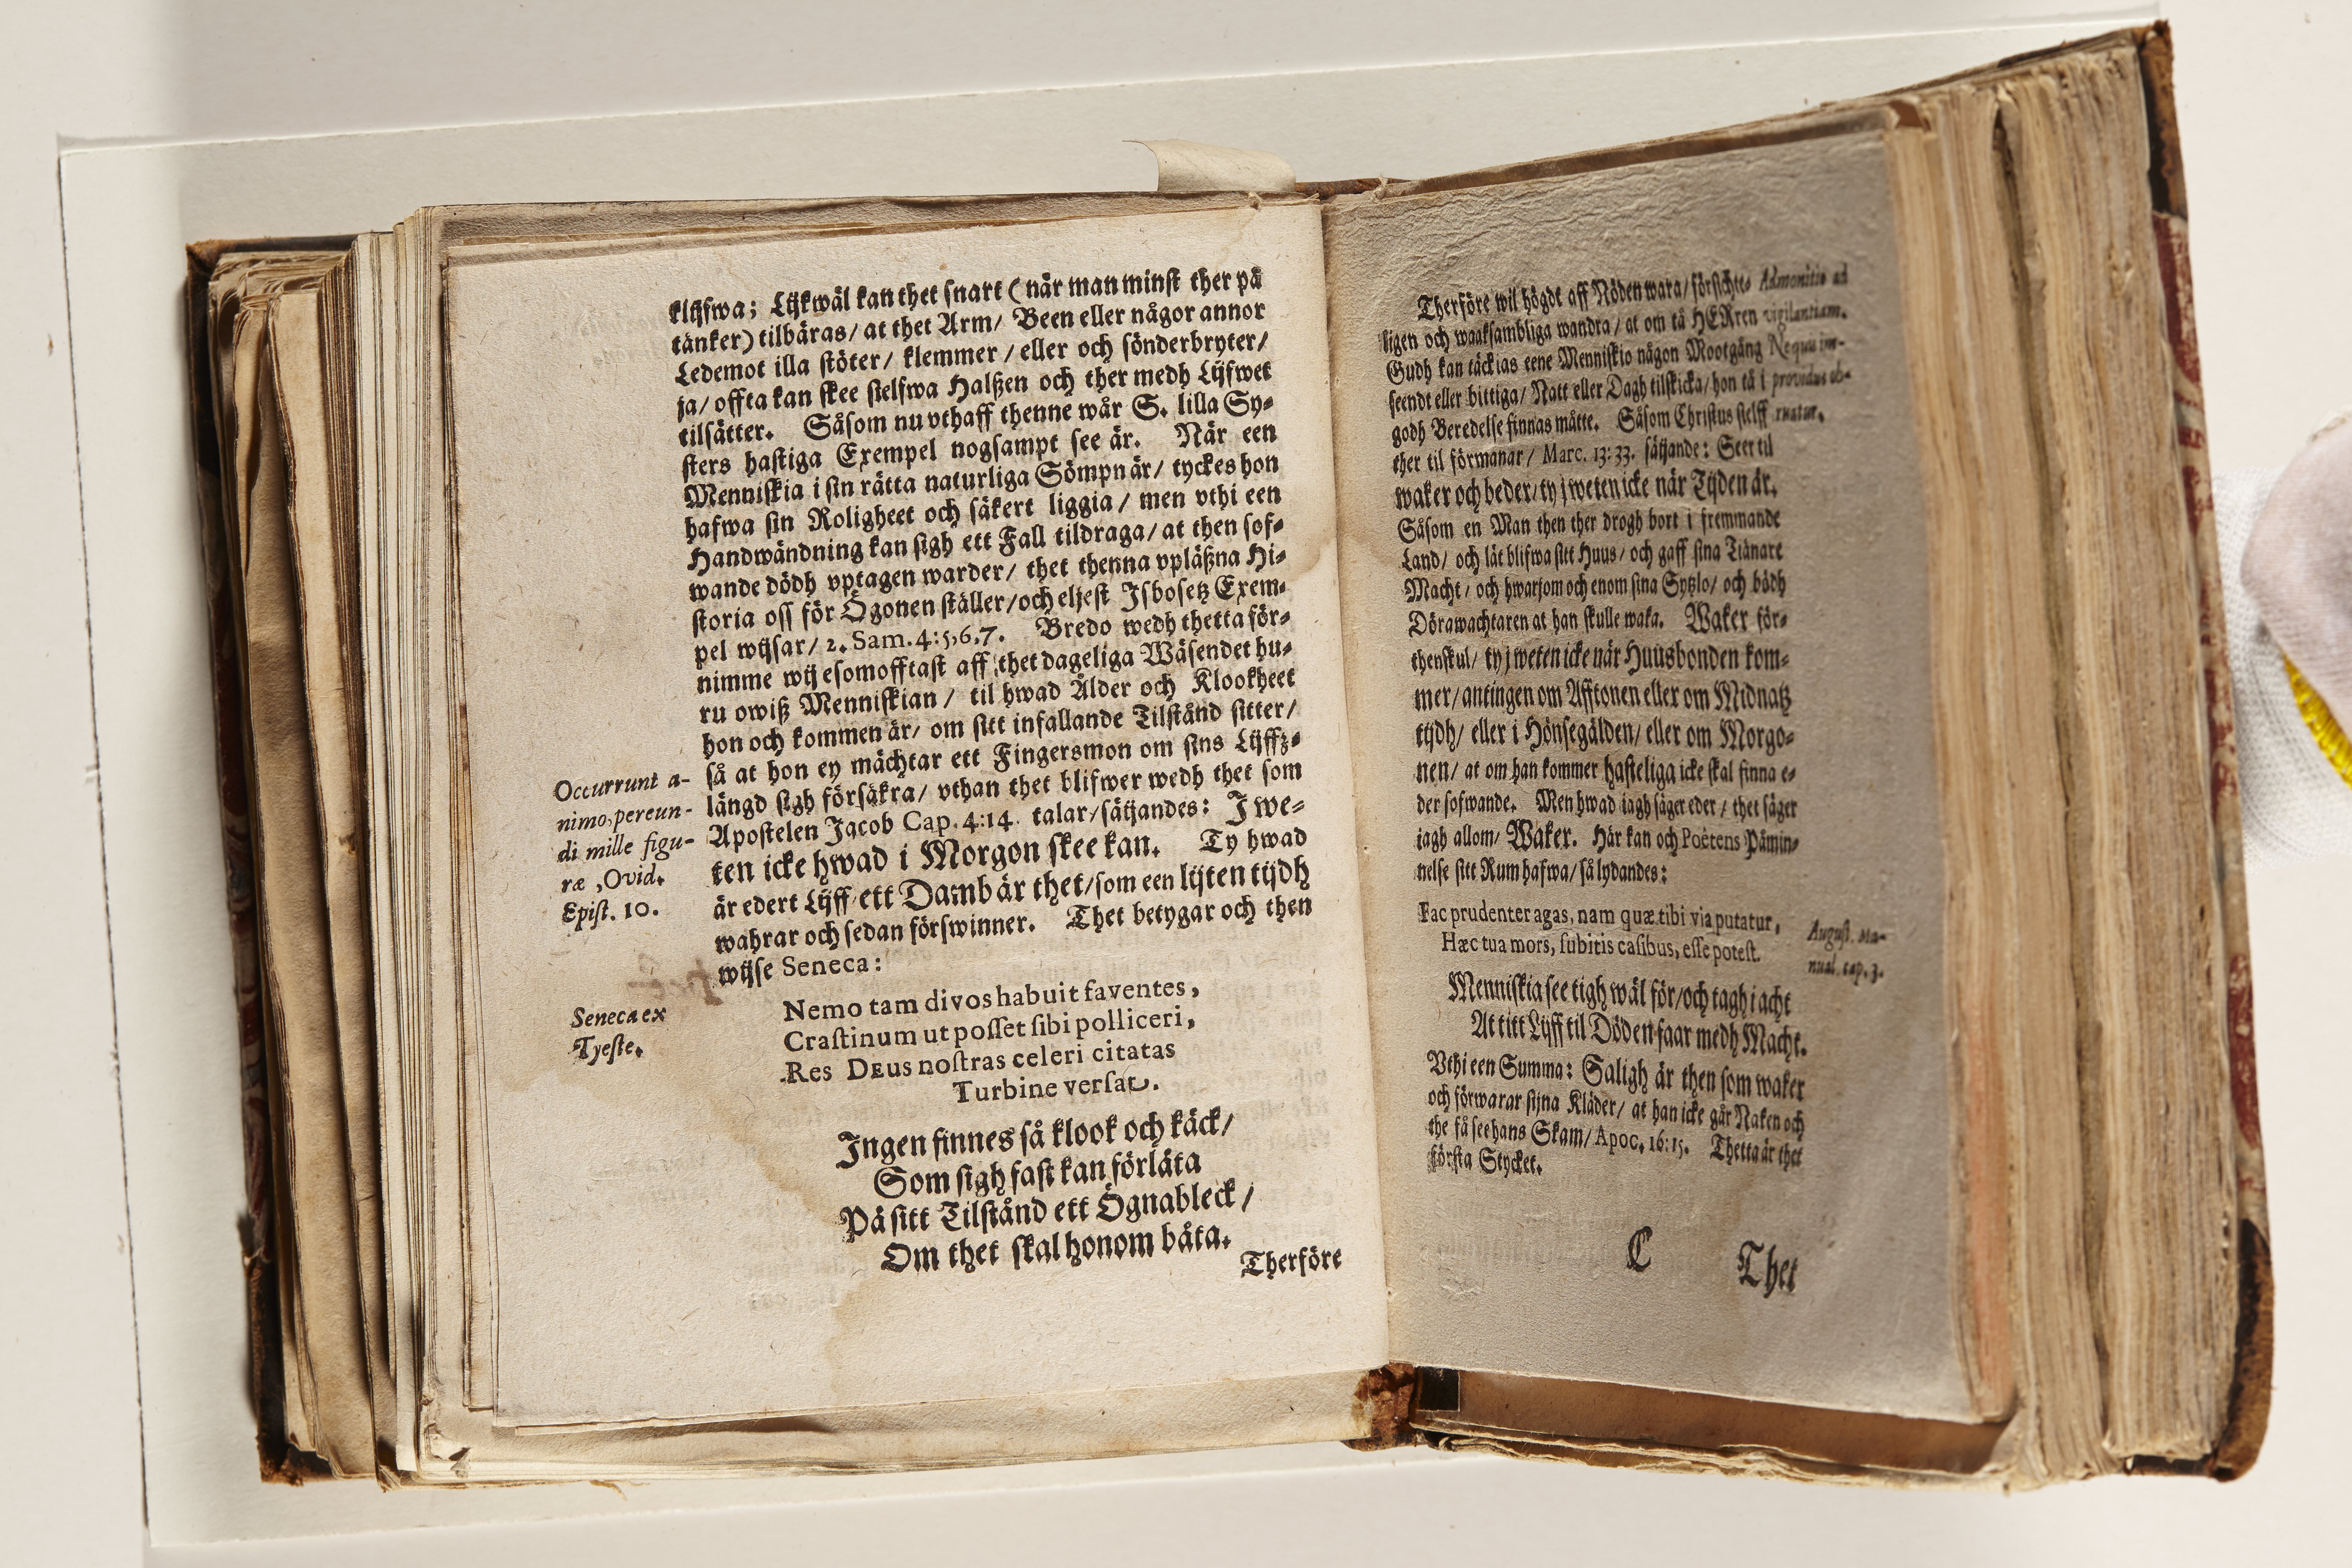 klijfwa; Lijkwäl kan thet snart (när man minst ther på
tänker) tilbäras/ at thet Arm/ Been eller någor annor
Ledemot illa stöter/ klemmer/ eller och sönderbryter/
ja/ offta kan skee sielfwa Halßen och ther medh Lijfwet
tilsätter. Såsom nu vthaff thenne wår S. lilla Sy-
sters hastiga Exempel nogsampt see är. När een
Menniskia i sin rätta naturliga Sömpn är/ tyckes hon
hafwa sin Roligheet och säkert liggia/ men vthi een
Handwändning kan sigh ett Fall tildraga/ at then sof-
wande dödh vptagen warder/ thet thenna vpläßna Hi-
storia oss för Ögonen ställer/ och eljest Isbosetz Exem-
pel wijsar/ 2. Sam. 4:5,6,7. Bredo wedh thetta för-
nimme wij esomofftast aff thet dageliga Wäsendet hu-
ru owiß Menniskian/ til hwad Ålder och Klookheet
hon och kommen är/ om sitt infallande Tilstånd sitter/
så at hon ey mächtar ett Fingersmon om sins Lijffz-
längd sigh försäkra/ vthan thet blifwer wedh thet som
Apostelen Jacob Cap. 4:14. talar/ säijandes: I we-
ten icke hwad i Morgon skee kan. Ty hwad
är edert Lijff/ ett Damb är thet/ som een lijten tijdh
wahrar och sedan förswinner. Thet betygar och then
wijse Seneca:
Occurrunt a-
nimo, pereun-
di mille figu-
ræ, Ovid.
Epist. 10.
Seneca ex
Tyeste.
Nemo tam divos habuit faventes,
Crastinum ut posset sibi polliceri,
Res DEus nostras celeri citatas
Turbine versat.
Ingen finnes så klook och käck/
Som sigh fast kan förläta
På sitt Tilstånd ett Ögnableck/
Om thet skal honom båta.
Therföre
Therföre wil högdt aff Nöden wara/ försichte-
ligen och waaksambliga wandra/ at om tå HERren
Gudh kan täckias eene Menniskio någon Mootgång
seendt eller bittiga/ Natt eller Dagh tilskicka/ hon tå i
godh Beredelse finnas måtte. Såsom Christus sielff
ther til förmanar/ Marc. 13:33. säijande: Seer til
waker och beder/ ty j weten icke när Tijden är.
Såsom en Man then ther drogh bort i fremmande
Land/ och lät blifwa sitt Huus/ och gaff sina Tiänare
Macht/ och hwarjom och enom sina Syßlo/ och bödh
Dörawachtaren at han skulle waka. Waker för-
thenskul/ ty j weten icke när Huusbonden kom-
mer/ antingen om Afftonen eller om Midnatz
tijdh/ eller i Hönsegälden/ eller om Morgo-
nen/ at om han kommer hasteliga icke skal finna e-
der sofwande. Men hwad iagh säger eder/ thet säger
iagh allom/ Waker. Här kan och Poëtens Påmin-
nelse sitt Rum hafwa/ så lydandes:
Admonitio ad
vigilantiam.
Nequu im-
providus ob-
ruatur.
Fac prudenter agas, nam quæ tibi via putatur,
Hæc tua mors, subitis casibus, esse potest.
August. Ma-
nual. cap. 3.
Menniskia see tigh wäl för/ och tagh i acht
At titt Lijff til Döden faar medh Macht.
Vthi een Summa: Saligh är then som waker
och förwarar sijna Kläder/ at han icke går Naken och
the få see hans Skam/ Apoc. 16:15. Thetta är thet
första Stycket.
C Thet